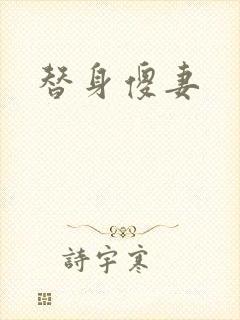 替身傻妻
詩宇寒